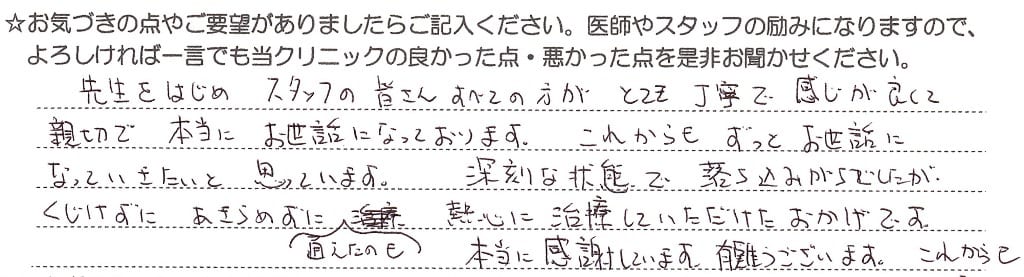 ☆お気づきの点やご要望がありましたらご記入ください。医師やスタッフの励みになりますので、
よろしければ一言でも当クリニックの良かった点・悪かった点を是非お聞かせください。
先生をはじめ スタッフの皆さん すべての方が とても 丁寧で 感じが良くて
親切で 本当に お世話になっております。 これからも ずっと お世話に
なっていきたいと 思っています。 深刻な状態で 落ち込みがちでしたが
くじけずに あきらめずに 熱心に 治療していただけた おかげです
通えたのも 本当に感謝しています。有難うございます。 これからも